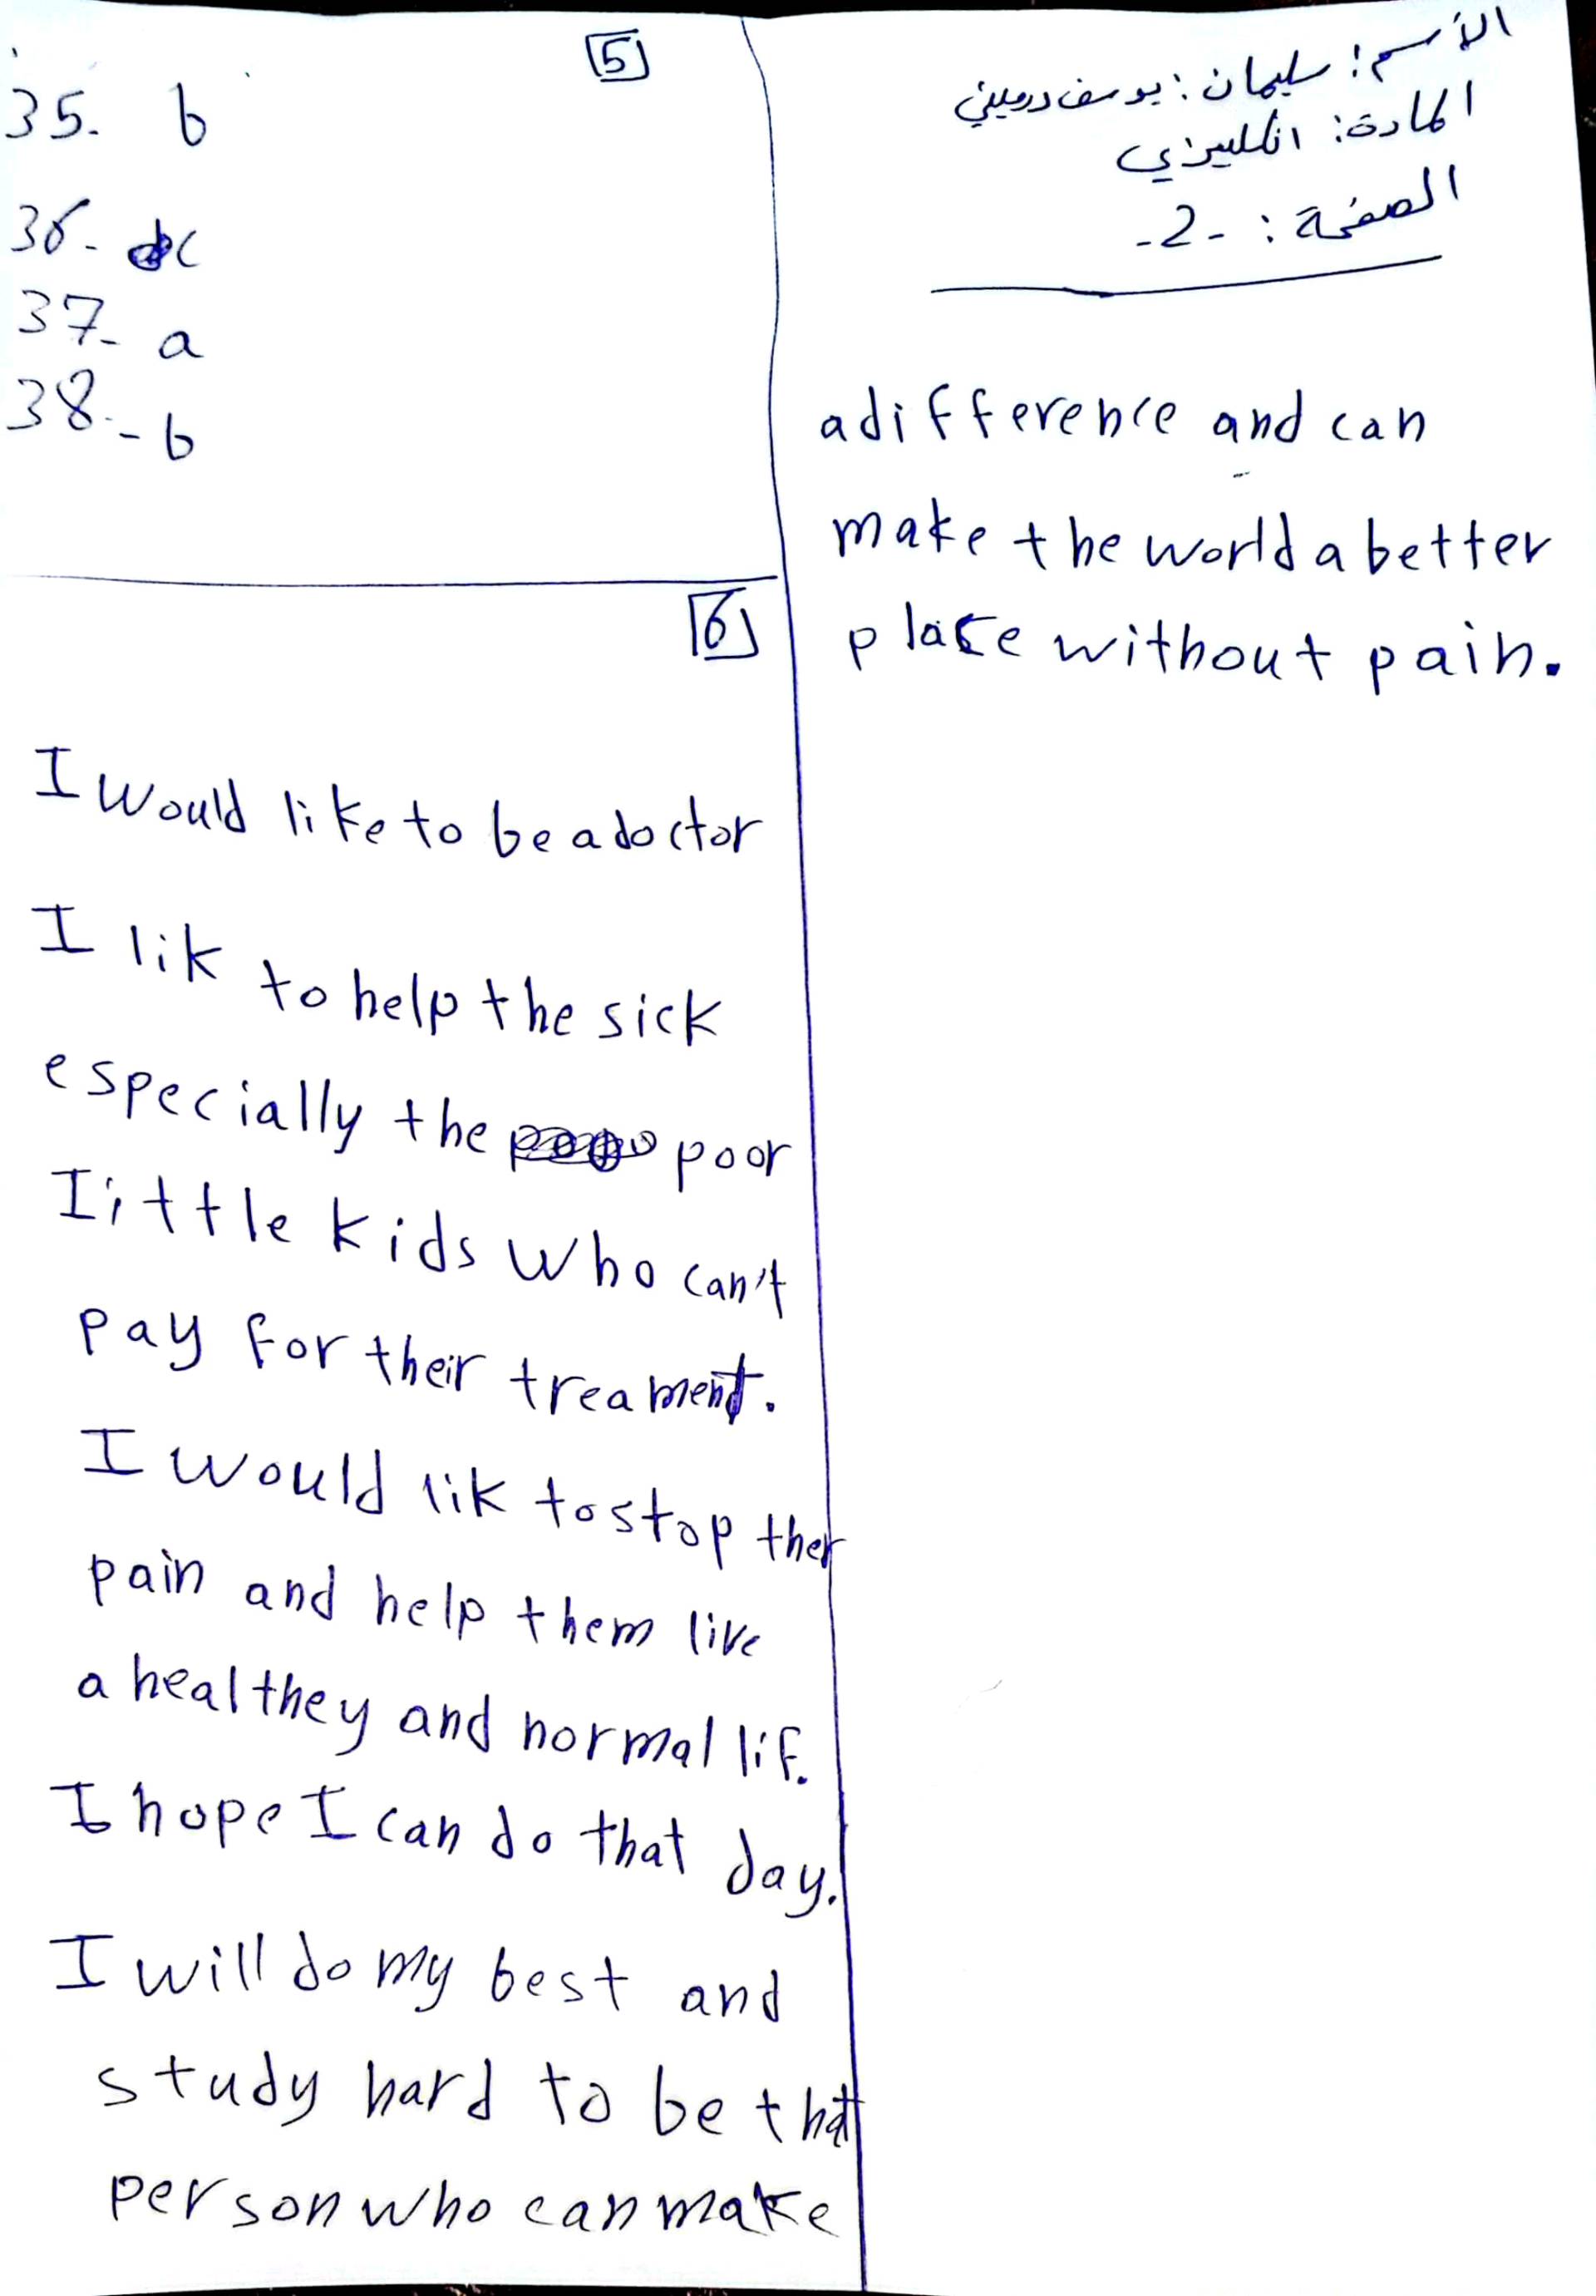 الأسم: سليمان: يوسف درميني
المادة: انكليزي
الصفحة: -2-
5
35. b
36- c
37- a
38-- b
6
I would like to be a doctor
I lik to help the sick
especially the poor
little kids who can't
pay for their treament.
I would lik to stop ther
pain and help them live
a healthey and normal lif.
I hope I can do that day.
I will do my best and
study hard to be that
person who can make
a difference and can
make the world a better
place without pain.